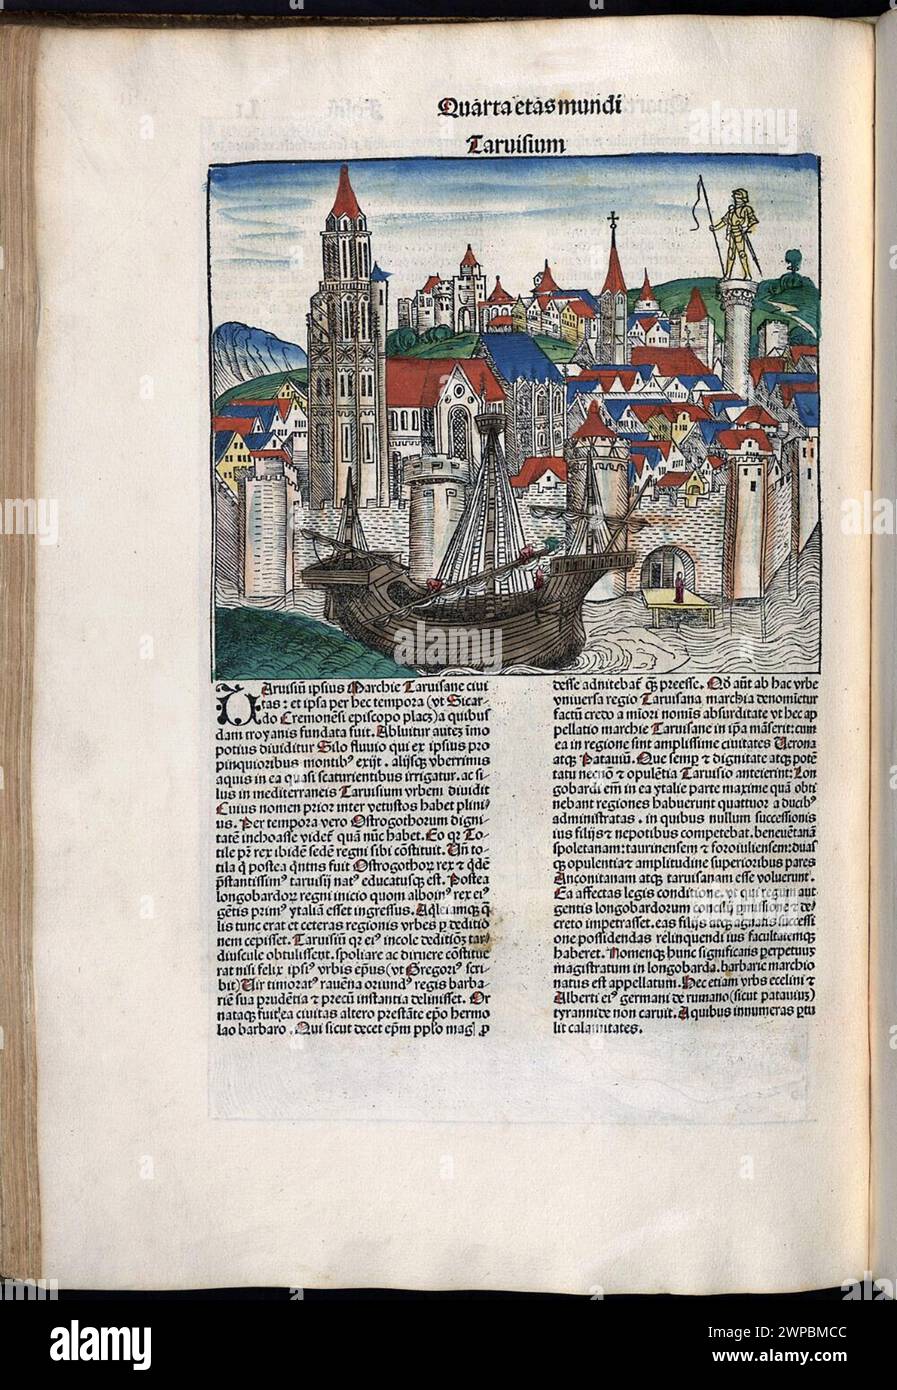 Quarta etas mundi
Taruisium
TAruisiũ ipsius Marchie Taruisane ciui
tas: et ipsa per hec tempora (vt Sicar
do Cremonẽsi episcopo placz) a quibus
dam troyanis fundata fuit. Abluitur autez ĩmo
potius diuiditur Silo fluuio qui ex ipsius pro
pinquioribus montibꝰ exijt. alijsqꝫ vberrimis
aquis in ea quasi scaturientibus irrigatur. ac si
lus in mediterraneis Taruisium vrbem diuidit
Cuius nomen prior inter vetustos habet plini/
us. Per tempora vero Ostrogothorum digni
tatẽ inchoasse videt quã nũc habet. Eo qꝛ To
tile pr̃ rex ibidẽ sedẽ regni sibi cõstituit. Un̄ to
tila qͥ postea qͥntus fuit Ostrogothoꝝ rex & qͥdẽ
p̃stantissimꝰ taruisij natꝰ educatusqꝫ est. Postea
longobardoꝝ regni inicio quom alboinꝰ rex eiꝰ
gẽtis primꝰ ytaliã esset ingressus. Aqleiamqꝫ q̃
lis tunc erat et ceteras regionis vrbes p deditio
nem cepisset. Taruisiũ qꝛ ei incole deditiõz tar/
diuscule obtulissent. spoliare ac diruere cõstitue
rat nisi felix ipsiꝰ vrbis ep̃us (vt Gregoriꝰ scri/
bit) Uir timoratꝰ rauẽna oriundꝰ regis barba/
riẽ sua prudẽtia & precũ instantia delinisset. Or
nataqꝫ fuit ea ciuitas altero prestãte ep̃o hermo
lao barbaro. Qui sicut decet ep̃m pp̃lo mag p
desse adnitebat qꝫ preesse. Qd aũt ab hac vrbe
vniuersa regio Taruisana marchia denomietur
factũ credo a miori nomĩs absurditate vt hec ap
pellatio marchie Taruisane in ip̃a mãserit: cum
ea in regione sint amplissime ciuitates Uerona
atqꝫ Patauiũ. Que semꝑ & dignitate atqꝫ potẽ
tatu necnõ & opulẽtia Taruisio anteierint: Lon
gobardi em̃ in ea ytalie parte maxime quã obti
nebant regiones habuerunt quattuor a ducibꝰ
administratas. in quibus nullum successionis
ius filijs & nepotibus competebat. beneuẽtanã
spoletanam: taurinensem & foroiuliensem: duas
qꝫ opulentia & amplitudine superioribus pares
Anconitanam atqꝫ taruisanam esse voluerunt.
Ea affectas legis conditione. vt qui regum aut
gentis longobardorum concilij pmissione & de/
creto impetrasset. eas filijs atqꝫ agnatis successi
one possidendas relinquendi ius facultatemqꝫ
haberet. Nomenqꝫ hunc significans perpetuuz
magistratum in longobarda. barbarie marchio
natus est appellatum. Hec etiam vrbs ecelini &
Alberti eiꝰ germani de rumano (sicut patauiuz)
tyrannide non caruit. A quibus innumeras ptu
lit calamitates.
alamy
Image ID: 2WPBMCC
www.alamy.com